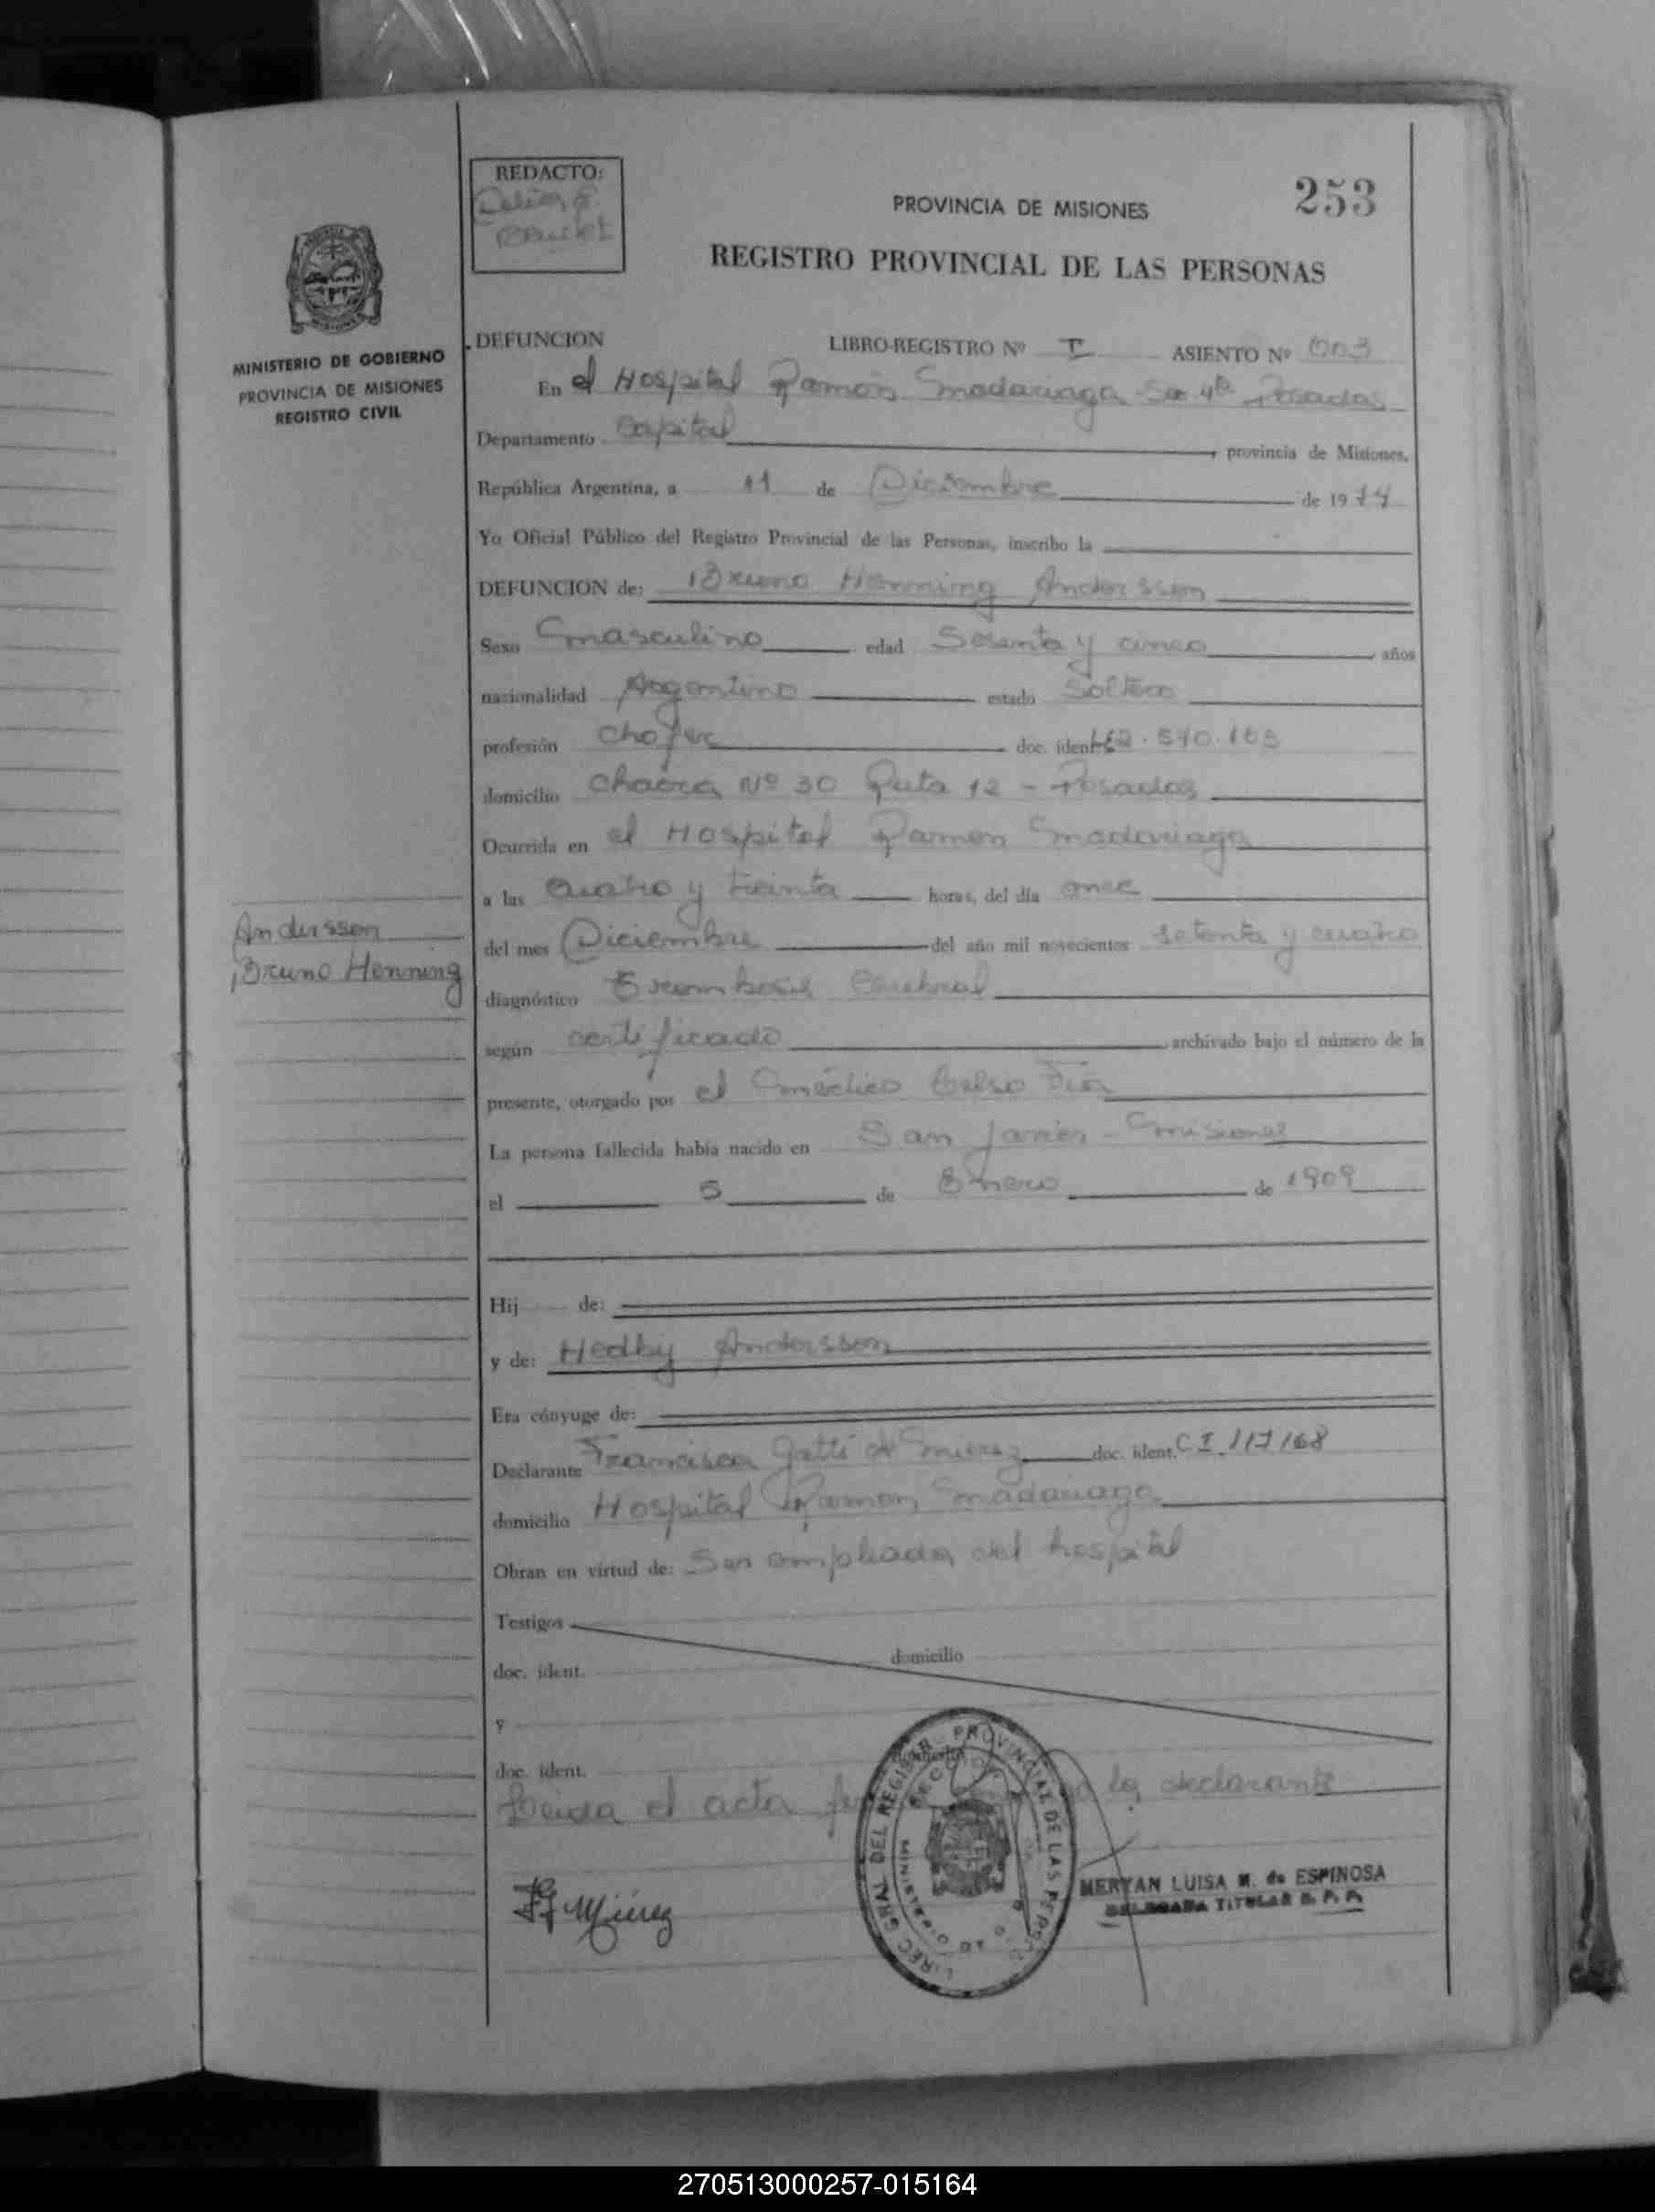 253
REDACTO:
PROVINCIA DE MISIONES
REGISTRO PROVINCIAL DE LAS PERSONAS
MINISTERIO DE GOBIERNO
PROVINCIA DE MISIONES
REGISTRO CIVIL
DEFUNCION LIBRO-REGISTRO Nº I ASIENTO Nº 003
En el Hospital Ramón Madariaga Sec 4ta Posadas
Departamento Capital provincia de Misiones,
República Argentina, a 11 de Diciembre de 1974
Yo Oficial Público del Registro Provincial de las Personas, inscribo la
DEFUNCION de: Bruno Henning Andersson
Sexo masculino edad Sesenta y cinco años
nacionalidad Argentino estado Soltero
profesión chofer doc. ident.
domicilio Chacra Nº 30 Ruta 12 - Posadas
Ocurrida en el Hospital Ramon Madariaga
a las cuatro y treinta horas, del día once
Andersson
Bruno Henning
del mes Diciembre del año mil novecientos setenta y cuatro
diagnóstico Trombosis Cerebral
según certificado archivado bajo el número de la
presente, otorgado por el médico Celso
La persona fallecida había nacido en San Javier - Misiones
el 5 de Enero de 1909
Hij de:
y de: Hedby Andersson
Era cónyuge de:
Declarante Francisca Gatti de Mierez doc. ident. C I 117168
domicilio Hospital Ramon Madariaga
Obran en virtud de: Ser empleada del hospital
Testigos
doc. ident. domicilio
y
doc. ident.
Leida el acta la declarante
DIREC. GRAL. DEL REGISTR. PROVINCIAL DE LAS PERSO
MERYAN LUISA M. de ESPINOSA
DELEGADA TITULAR R. P. P.
270513000257-015164